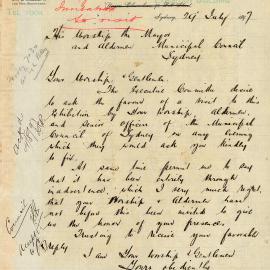 Invitation
to visit
Sydney, 29 July 97
His Worship the Mayor
and Aldermen Municipal Council
Sydney
Your Worship & Gentlemen
The Executive Committee desire
to ask the favour of a visit to this
Exhibition by Your Worship, Aldermen,
and Senior Officers of the Municipal
Council of Sydney on any Evening
which they would ask you kindly
to fix.
At same time permit me to say
that it has been entirely through
inadvertence, which I very much regret,
that your Worship & Aldermen have
not before this been invited to give
us the honor of your presence.
Trusting to receive your favorable
reply
I am Your Worship & Gentlemen
Yours obediently